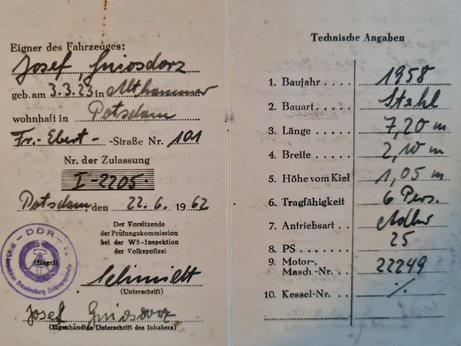 Eigner des Fahrzeuges:
Josef Gniosdorz
geb. am 3.3.23 in Althammer
wohnhaft in Potsdam
Fr.-Ebert- -Straße Nr. 101
Nr. der Zulassung
I-2205.
Potsdam, den 22.6. 1962
Der Vorsitzende
der Prüfungskommission
bei der WS-Inspektion
der Volkspolizei
(Siegel)
DDR
Schmidt
(Unterschrift)
Josef Gniosdorz
(Eigenhändige Unterschrift des Inhabers)
Technische Angaben
1. Baujahr . . . . 1958
2. Bauart . . . . Stahl
3. Länge . . . . 7,20 m
4. Breite . . . . 2,10 m
5. Höhe vom Kiel . 1,05 m
6. Tragfähigkeit . 6 Pers.
7. Antriebsart . . Adler
8. PS . . . . 25
9. Motor-
Masch-Nr. . . . 22249
10. Kessel-Nr. . . . ⁒